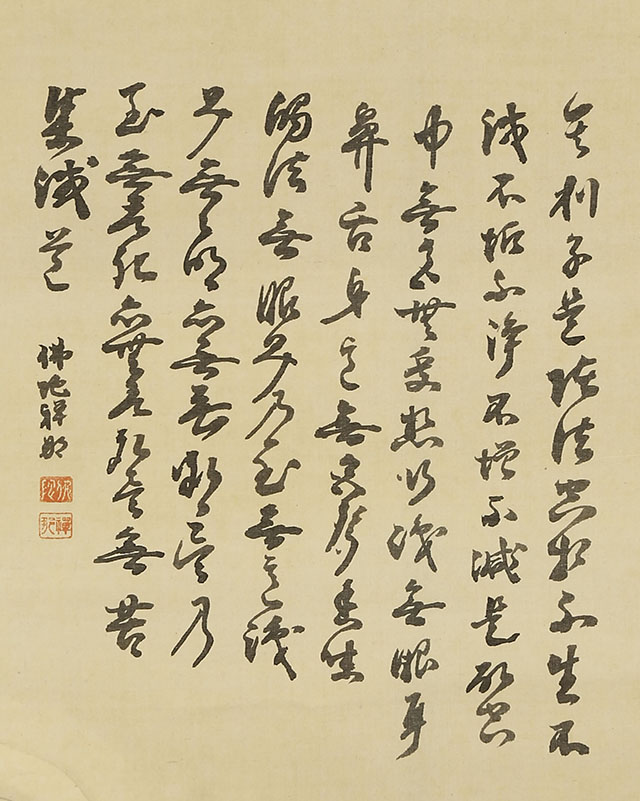 舍利子是諸法空相不生不
滅不垢不淨不增不減是故空
中無色無受想行識無眼耳
鼻舌身意無色聲香味
觸法無眼界乃至無意識
界無〻明亦無無明盡乃
至無老死亦無老死盡無苦
集滅道
佛陀禪那
佛陀
禪那